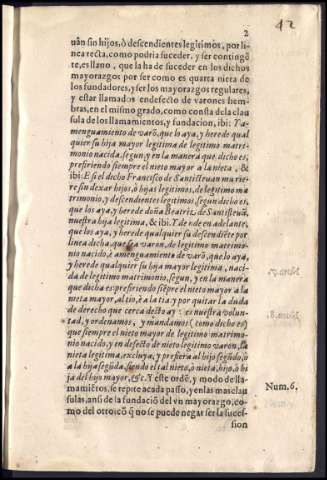 2
42
uãn sin hijos, ò descendientes legitimos, por li
nea recta, como podria suceder, y ser contingē
te, es llano, que la ha de suceder en los dichos
mayorazgos por ser como es quarta nieta de
los fundadores, y ser los mayorazgos regulares,
y estar llamados en defecto de varones hem-
bras, en el mismo grado, como consta de la clau
sula de los llamamientos, y fundacion, ibi: Y a-
menguamiento de varõ, que lo aya, y herede qual
quier su hija mayor legitima de legitimo matri-
monio nacida, segun, y en la manera que dicho es,
prefiriendo siempre el nieto mayor a la nieta, &
ibi: E si el dicho Francisco de Santisteuan murie
re sin dexar hijos, ò hijas legitimos, de legitimo ma
trimonio, y descendientes legitimos, segun dicho es,
que los aya, y herede doña Beatriz de Santisteuã,
nuestra hija legitima, & ibi. Y dende en adelante,
que los aya, y herede qualquier su descendiēte por
linea dicha, que sea varon, de legitimo matrimo-
nio nacido, è amenguamiento de varõ, que lo aya,
y herede qualquier su hija mayor legitima, naci-
da de legitimo matrimonio, segun, y en la manera
que dicho es: prefiriendo siēpre el nieto mayor a la
nieta mayor, al tio, è a la tia, y por quitar la duda
de derecho que cerca desto ay: es nuestra volun-
tad, y ordenamos, y mandamos (como dicho es)
que siempre el nieto mayor de legitimo matrimo-
nio nacido, y en defecto de nieto legitimo varon, la
nieta legitima, excluya, y prefiera al hijo segũdo, ò
a la hija segũda, siendo el tal nieto, ò nieta, hijo, ò hi
ja del hijo mayor, &c. Y este ordē, y modo de lla-
mamiētos, se repite acada passo, y en las mas clau
sulas, ansi de la fundaciõ del vn mayorazgo, co-
Num. 6.
mo del otro: cõ q̃ no se puede negar ser la suces-
sion